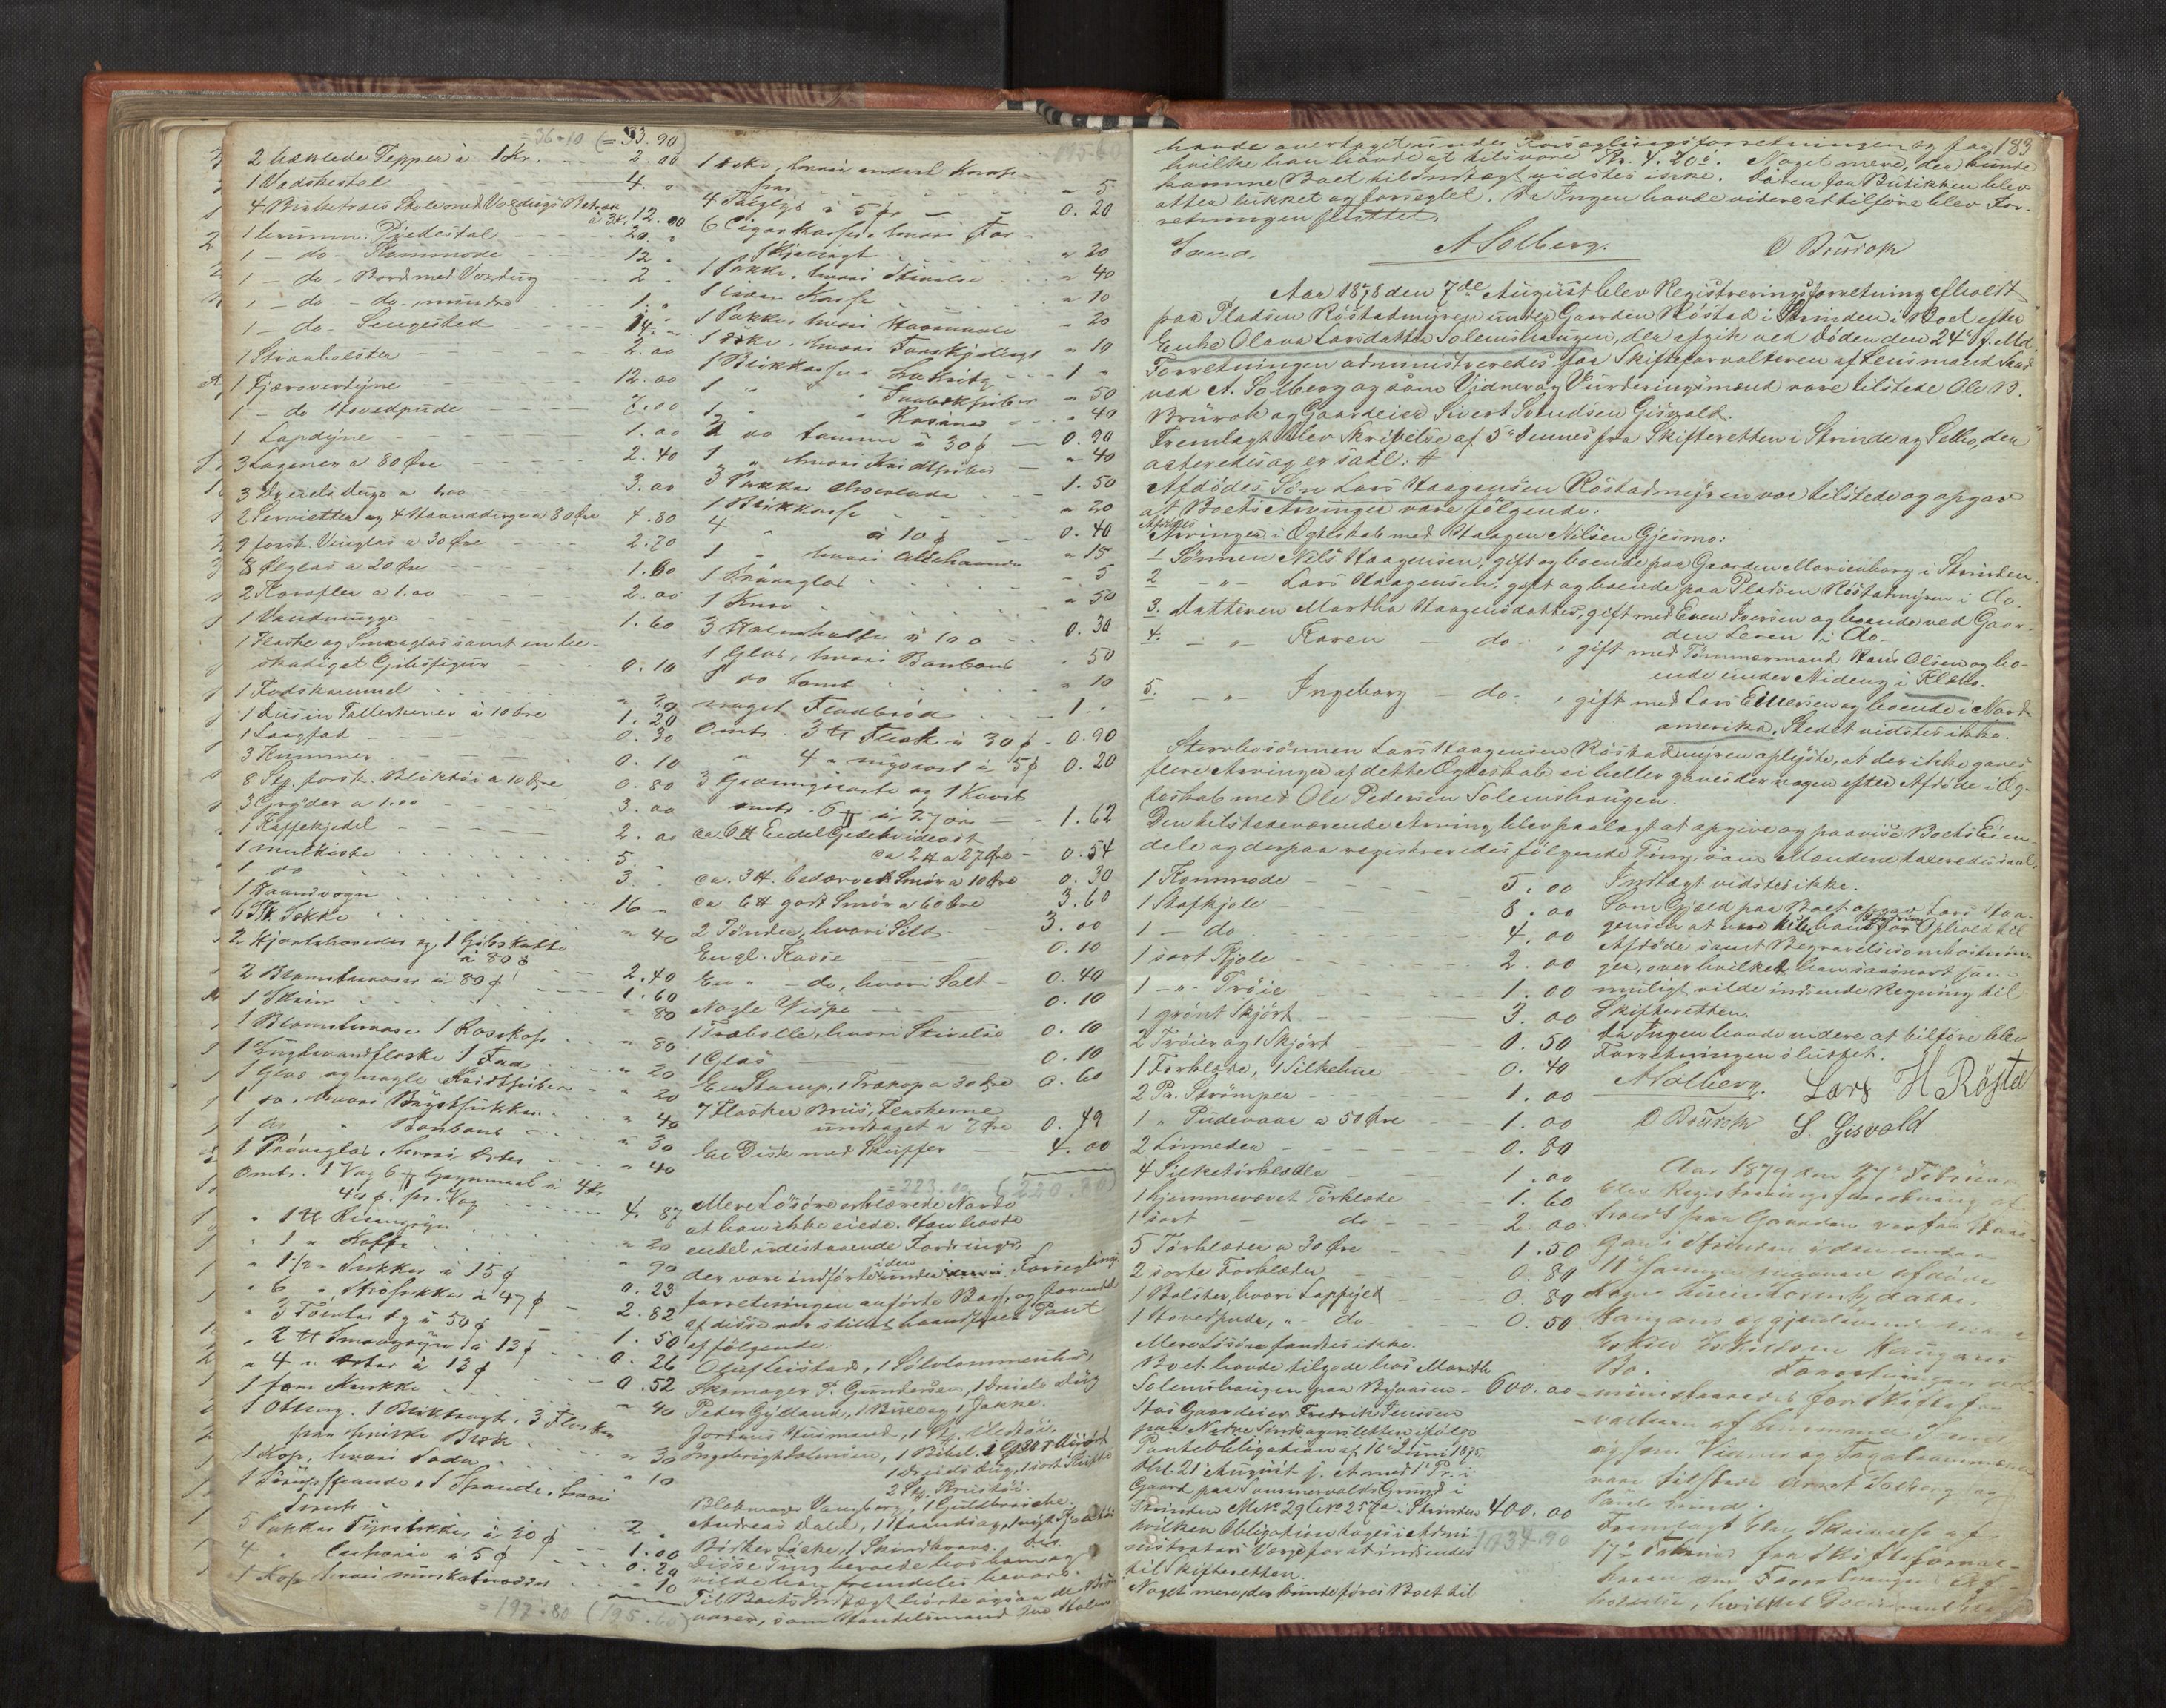 = 36.10 (= 33.90)
2 hæklede Tepper à 1 Kr. 2.00
1 Vadskestel 4. "
4 Birketræes Stole med Voxdugs Betræk
à 3 Kr. 12.00
1 brunm. Piedestal 20. "
1 - do - Kommode 12. "
1 - do - Bord med Voxdug 2. "
1 - do - do - mindre 1. "
1 - do - Sengested 14. "
1 Straabolster 2.00
1 Fjæroverdyne 12.00
1 - do Hovedpude 7.00
1 Lapdyne 1.00
3 Lagener a 80 Øre 2.40
3 Dreiels Duge a 1.00 3.00
2 Servietter og 4 Haandduge a 80 Øre 4.80
9 forsk. Vinglas a 30 Øre 2.70
8 Ølglas a 20 Øre 1.60
2 Karafler a 1.00 2.00
1 Vandmugge 1.60
1 Flaske og Smaaglas samt en be-
skadiget Gibsfigur 0.10
1 Fodskammel " 20
1 Dusin Tallerkener à 10 Øre 1.20
1 Langfad 0.30
3 Kummer 0.10
8 Stk. forsk. Bliktøi a 10 Øre 0.80
3 Gryder a 1.00 3.00
1 Kaffekjedel 2.00
1 melkiste 5. "
1 do 3. "
1 Haandvogn 16 "
6 Stk. Sække " 40
2 Hjortehoveder og 1 Gibskatte
à 80 ø 2.40
2 Blomstervaser à 80 ø 1.60
1 Skrin " 80
1 Blomstervase 1 Raskop " 80
1 Lugtevandflaske 1 Fad " 20
1 Glas og nogle Kridtpiber " 20
1 do, hvori Brystsukker " 40
1 do " Bonbons " 30
1 Prøveglas, hvori Erter " 40
Omtr. 1 Vog 6 ℔ Bygmeel à 4 Kr
40 ø. pr. Vog 4.87
" 1 ℔ Risengryn " 20
" 1 " Kaffe " 90
" 1½ " Sukker à 15 ø 0.23
" 6 " Strøsukker à 47 ø 2.82
" 3 Tomter Ky à 50 ø 1.50
" 2 ℔ Smaagryn à 13 ø 0.26
" 4 " Erter à 13 ø 0.52
1 tom Kurk " 40
1 Otting, 1 Bliktragt, 3 Flasker
paa hvilke Blæk " 30
1 Kop, hvori Soda " 10
1 Spande, 1 Spande, hvori
Tran 2 "
5 Pakker Fyrstikker à 20 ø 1.00
4 " Cichorie à 5 ø 0.20
1 Kop hvori muskatnødder " 10
= 197.80 (195.60)
195.60
1 Æske, hvori endeel Knap-
per " 5
4 Talglys à 5 ø 0.20
6 Cigarkasser, hvori For-
skjelligt " 20
1 Pakke, hvori Stivelse " 40
1 liden Kasse " 10
1 Pakke, hvori Haarnaale " 20
1 Æske, hvori Farveskjelings " 10
1 Blikkasse, Lakrits 1 "
1 " " Tobakspiber " 50
1 " " Rosiner " 40
3 do tomme à 30 ø 0.90
1 " " hvori Kridtpiber " 40
3 Pakker Chocolade 1.50
1 Blikkasse " 20
4 " à 10 ø 0.40
1 " hvori Allehaande " 15
1 Prøveglas " 5
1 Kniv " 50
3 Halmhatter à 10 ø 0.30
1 Glas, hvori Bonbons " 50
1 do tomt " 10
noget Fladbrød 1. "
Omtr. 3 ℔ Flesk à 30 ø 0.90
" 4 " mysost à 5 ø 0.20
3 Grømgjeoste og 1 Kvart
omtr. 6 ℔ à 27 Øre 1.62
ca 6 ℔ Endel Gedehvideost
ca 2 ℔ a 27 Øre 0.54
ca. 3 ℔. bedærvet Smør a 10 Øre 0.30
ca 6 ℔ godt Smør a 60 Øre 3.60
2 Tønder, hvori Sild 3.00
En gl. Kasse 0.10
En " - do, hvori Salt 0.40
Nogle Visper 0.10
1 Træbolle, hvori Stivelse 0.10
1 Glas 0.10
En Stamp, 1 Trækop a 30 Øre 0.60
7 Flasker Bruus, Flaskerne
undtaget a 7 Øre 0.49
En Disk med Skuffer 4.00
= 223.00 (220.80)
Mere Løsøre erklærede Nardo
at han ikke eiede. Han havde
endel udestaaende Fordringer,
der vare indførte i den under Forseglings-
forretningen anførte Bog, og forunder
af disse var stillet haandfaaet Pant
efter følgende:
Oluf Leistad, 1 Sølvlommeuhr,
Skomager P. Gundersen, 1 Dreiels Dug
Peder Gylland, 1 Buxe og 1 Jakke.
Jordans Huusmand, 1 Stk. Uldtøi.
Ingebrigt Johnsen, 1 Bibel, 2 Gdss Skjørt
1 Dreiels Dug, 1 sort Skjørte
2 Stk. Kruustøi.
Blokmager Vangberg, 1 Guldbrosche.
Andreas Dahl, 1 Haandsag, 1 nyt Kjoletøi
Bødker Løcke, 1 Skindkrave.
Disse Ting beroede hos ham og
vilde han fremdeles bevare.
Til Boets Indtægt hørte ogsaa de Brød-
varer, som Handelsmand Iver Holm
183
havde overtaget under Forseglingsforretningen og faa
hvilke han havde at tilsvare Kr. 4.20 ø. Noget mere, der kunde
komme Boet til Indtægt vidstes ikke. Døren for Butikken blev
atter lukket og forseglet. Da Ingen havde videre at tilføre blev For-
retningen sluttet.
Saa d. A Solberg. O Brurok
Aar 1878 den 7de August blev Registreringsforretning afholdt
paa Pladsen Røstadmyren under Gaarden Røstad i Strinden i Boet efter
Enke Olava Larsdatter Solemshaugen, der afgik ved Døden den 24e f. Md.
Forretningen administreredes for Skifteforvalteren af Lensmand Saxe
ved A. Solberg og som Vidner og Vurderingsmænd vare tilstede Ole B.
Brurok og Gaardeier Sivert Svendsen Gisvold.
Fremlagt blev Skrivelse af 5te dennes fra Skifteretten i Strinde og Selbo, der
acteredes og er saal: #
Afdødes Søn Lars Haagensen Røstadmyren var tilstede og opgav
at Boets Arvinger vare følgende:
Afdødes
Arvinger i Ægteskab med Haagen Nilsen Gjesmo:
1 Sønnen Nils Haagensen, gift og boende paa Gaarden Marienborg i Strinden.
2 - " - Lars Haagensen, gift og boende paa Pladsen Røstadmyren i do.
3. Datteren Martha Haagensdatter, gift med Even Iversen og boende ved Gaar-
den Leren i do-
4. - " - Karen - do - , gift med Tømmermand Hans Olsen og bo-
ende under Nideng i Klæbo.
5. - " - Ingeborg - do - , gift med Lars Ellersen og boende i Nord-
amerika. Stedet vidstes ikke.
Stervbosønnen Lars Haagensen Røstadmyren oplyste, at der ikke gaves
flere Arvinger af dette Ægteskab ei heller gaves der nogen efter Afdøde i Æg-
teskab med Ole Pedersen Solemshaugen.
Den tilstedeværende Arving blev paalagt at opgive og paavise Boets Eien-
dele og derpaa registreredes følgende Ting, som Mændene taxeredes saal.
1 Kommode 5.00
1 Stofkjole 8.00
1 - do 4.00
1 sort Kjole 2.00
1 - " - Trøie 1.00
1 grønt Skjørt 3.00
2 Trøier og 1 Skjørt 0.50
1 Forklæde, 1 Silkehue 0.40
2 Pr. Strømper 1.00
1 " Pudevaar a 50 Øre 1.00
2 Linneder 0.80
4 Silketørklæder 1.00
1 hjemmevævet Tørklæde 1.60
1 sort - do - 2.00
5 Tørklæder a 30 Øre 1.50
2 sorte Forklæder 0.80
1 Bolster, hvori Lapfyld 0.80
1 Hovedpude, " do 0.50
Mere Løsøre fandtes ikke.
Boet havde tilgode hos Marith
Solemshaugen paa Byaasen 600.00
Hos Gaardeier Fredrik Jenssen
paa Nedre Sindsagersletten ifølge
Panteobligation af 16de Juni 1875,
thl. 21 August s. A med 1' Pr. i
Gaard paa Sommervolds Grund i
Strinden M No 29 L No 257a i Strinden 400.00
hvilken Obligation toges i Admi-
nistrators Værge for at indsendes 1034.90
til Skifteretten.
Noget mere, der kunde føres Boet til
Indtægt vidstes ikke.
Som Gjæld paa Boet opgav Lars Haa-
gensen at være hans Fordring for Ophold til
Afdøde samt Begravelsesomkostnin-
ger, over hvilket han saasnart som
muligt vilde indsende Regning til
Skifteretten.
Da Ingen havde videre at tilføre blev
Forretningen sluttet.
A Solberg. Lars H Røstad
O Brurok S. Gisvold
Aar 1879 den 27de Februar
blev Registreringsforretning af-
holdt paa Gaarden
gan i Strinden i den under
11te Januar afdøde
Kone
Haugans og gjenlevende
Eskild Eskildsen Haugans
Bo. Forretningen ad-
ministreredes for Skiftefor-
valteren af Lensmand Saxe
og som Vidner og Taxationsmænd
vare tilstede Arnt Solberg og
Fremlagt blev Skrivelse af
17de Februar fra Skifteforval-
teren om Forretningens Af-
holdelse, hvilket Document